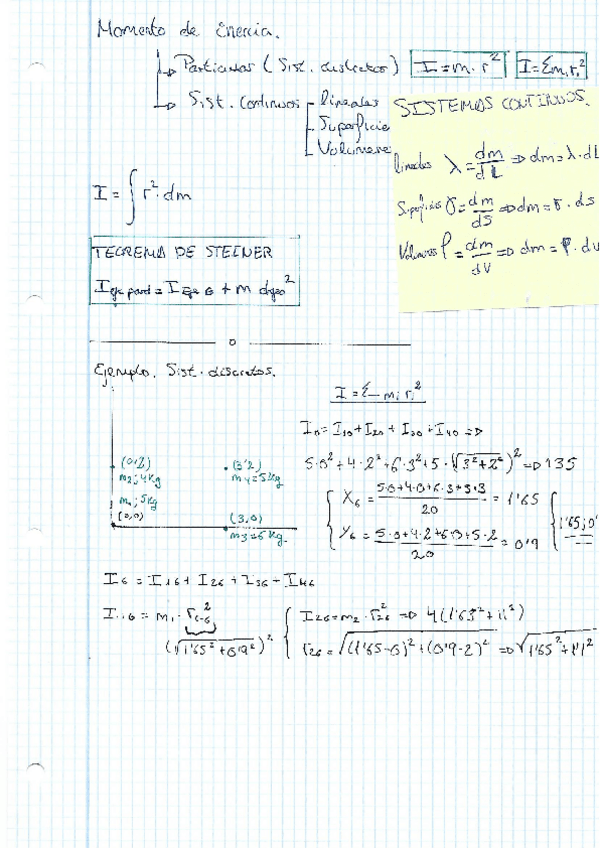 Momento de Enercia.
↳ Particulas (Sist. discretos) I = m · r² I = Σmᵢrᵢ²
↳ Sist. Continuos - lineales
- Superficie
- Volúmene
SISTEMAS CONTINUOS.
lineales λ = dm/dL ⇒ dm = λ · dL
Superficies σ = dm/ds ⇒ dm = σ · ds
Volumenes ρ = dm/dV ⇒ dm = ρ · dv
I = ∫ r² · dm
TEOREMA DE STEINER
I eje paral = I Eje G + m dejes²
Ejemplo. Sist. discretos.
I = Σ mᵢ rᵢ²
I₀ = I₁₀ + I₂₀ + I₃₀ + I₄₀ ⇒
5·0² + 4·2² + 6·3² + 5·(√3²+2²)² ⇒ 135
(0,2)
m₂; 4kg
m₁; 5kg
(0,0)
(3,2)
m4 = 5kg
(3,0)
m3 = 6 kg.
X_G = (5·0+4·0+6·3+5·3)/20 = 1'65
Y_G = (5·0+4·2+6·0+5·2)/20 = 0'9
(1'65; 0'
I_G = I₁G + I₂G + I₃G + I₄G
I₁G = m₁ · r₁₋G²
(√1'65² + 0'9²)²
I₂G = m₂ · r₂G² ⇒ 4(1'65² + 1'1²)
r₂G = √(1'65-0)² + (0'9-2)² ⇒ √1'65² + 1'1²